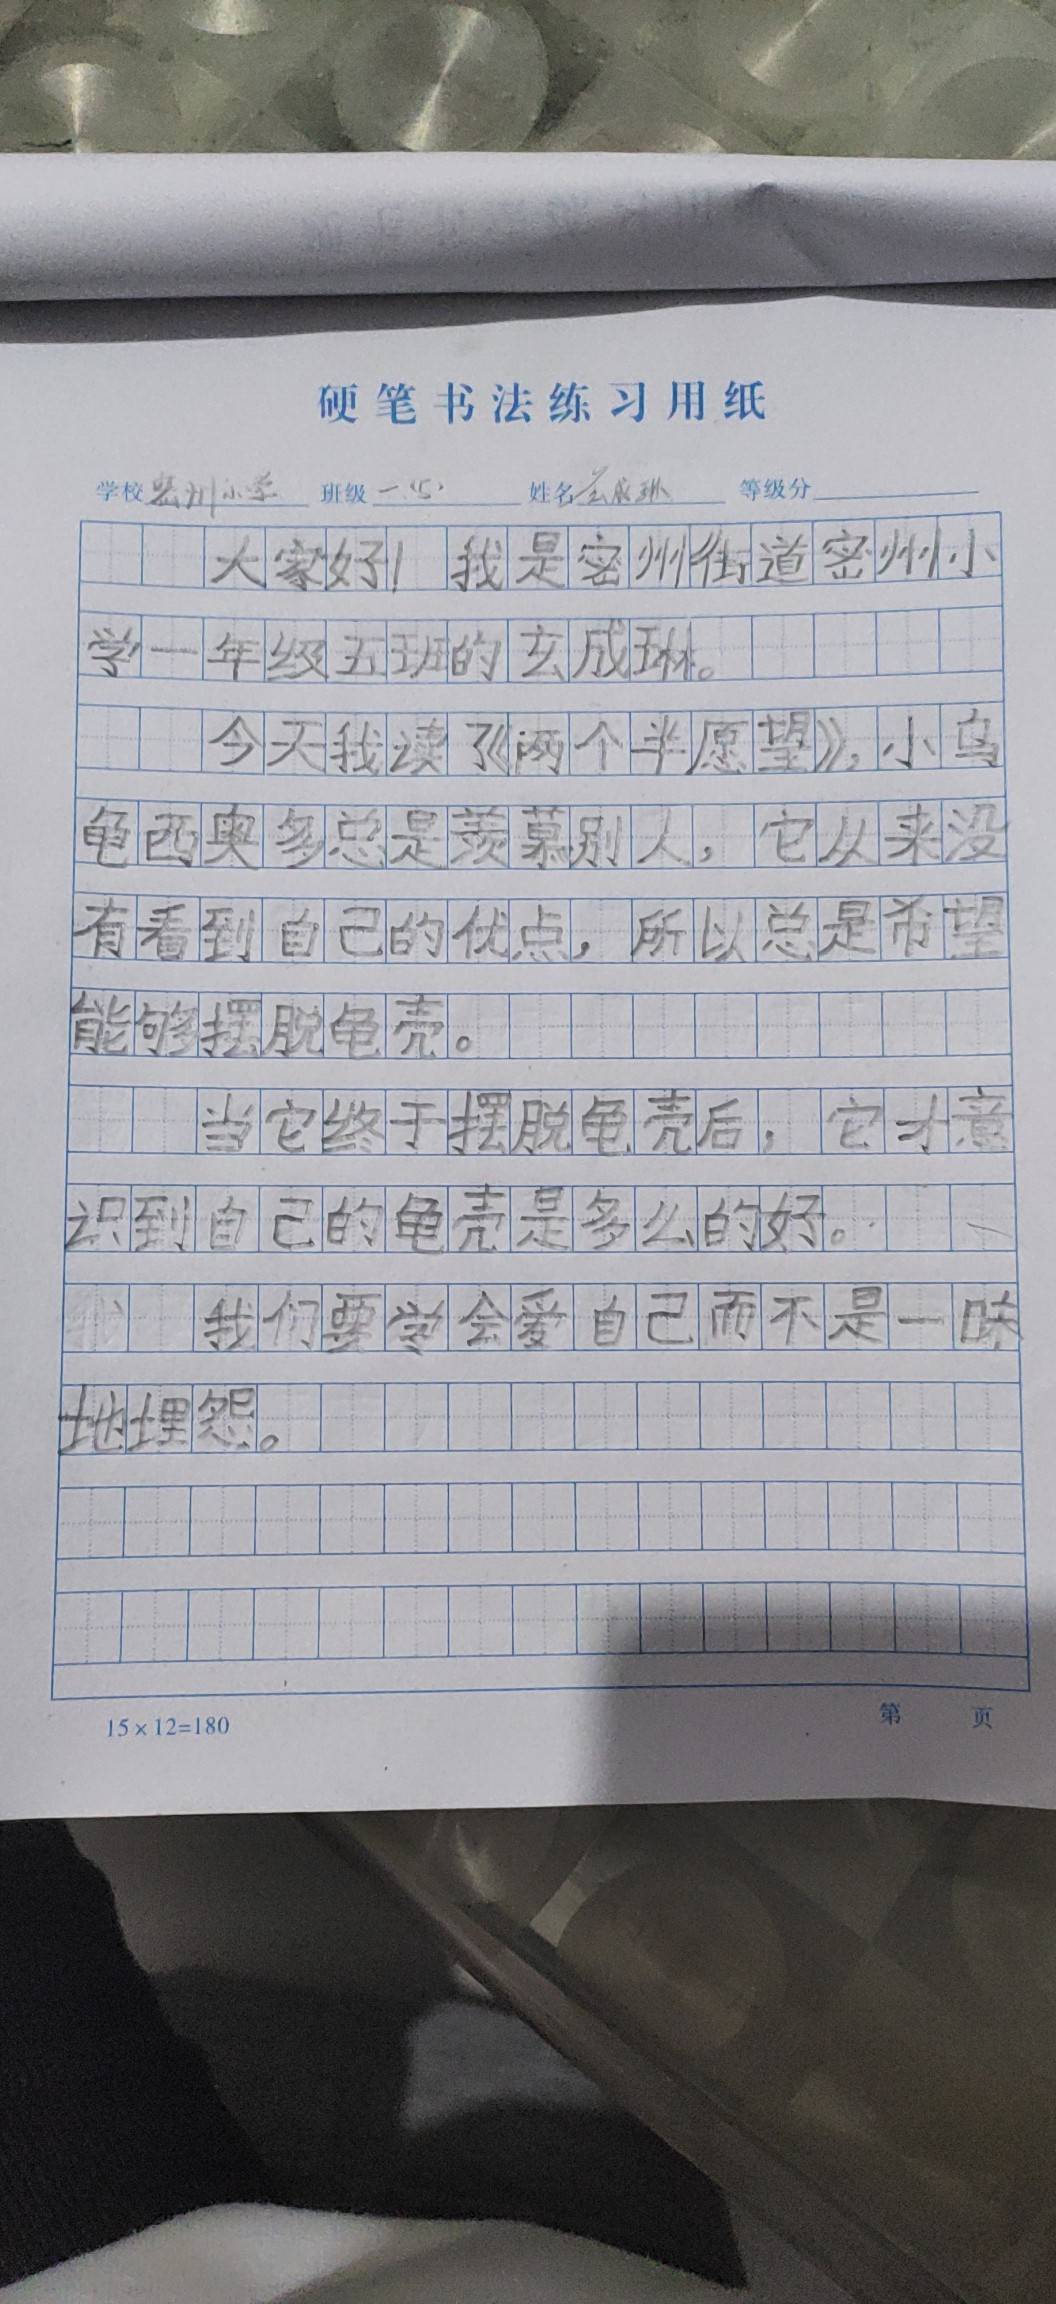 硬笔书法练习用纸
学校密州小学 班级一(5) 姓名玄成琳 等级分
大家好！我是密州街道密州小
学一年级五班的玄成琳。
今天我读了《两个半愿望》，小乌
龟西奥多总是羡慕别人，它从来没
有看到自己的优点，所以总是希望
能够摆脱龟壳。
当它终于摆脱龟壳后，它才意
识到自己的龟壳是多么的好。
我们要学会爱自己而不是一味
地埋怨。
15×12=180
第 页